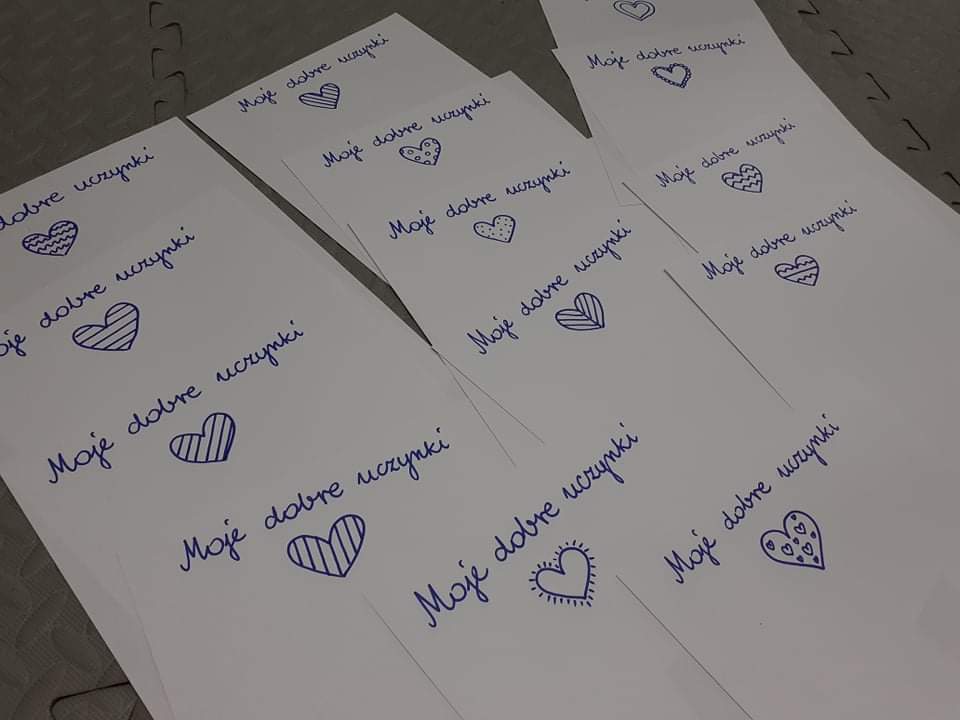 dobre uczynki
oje dobre uczynki
Moje dobre uczynki
Moje dobre uczynki
Moje dobre uczynki
Moje dobre uczynki
Moje dobre uczynki
Moje dobre uczynki
Moje dobre uczynki
Moje dobre uczynki
Moje dobre uczynki
Moje dobre uczynki
Moje dobre uczynki